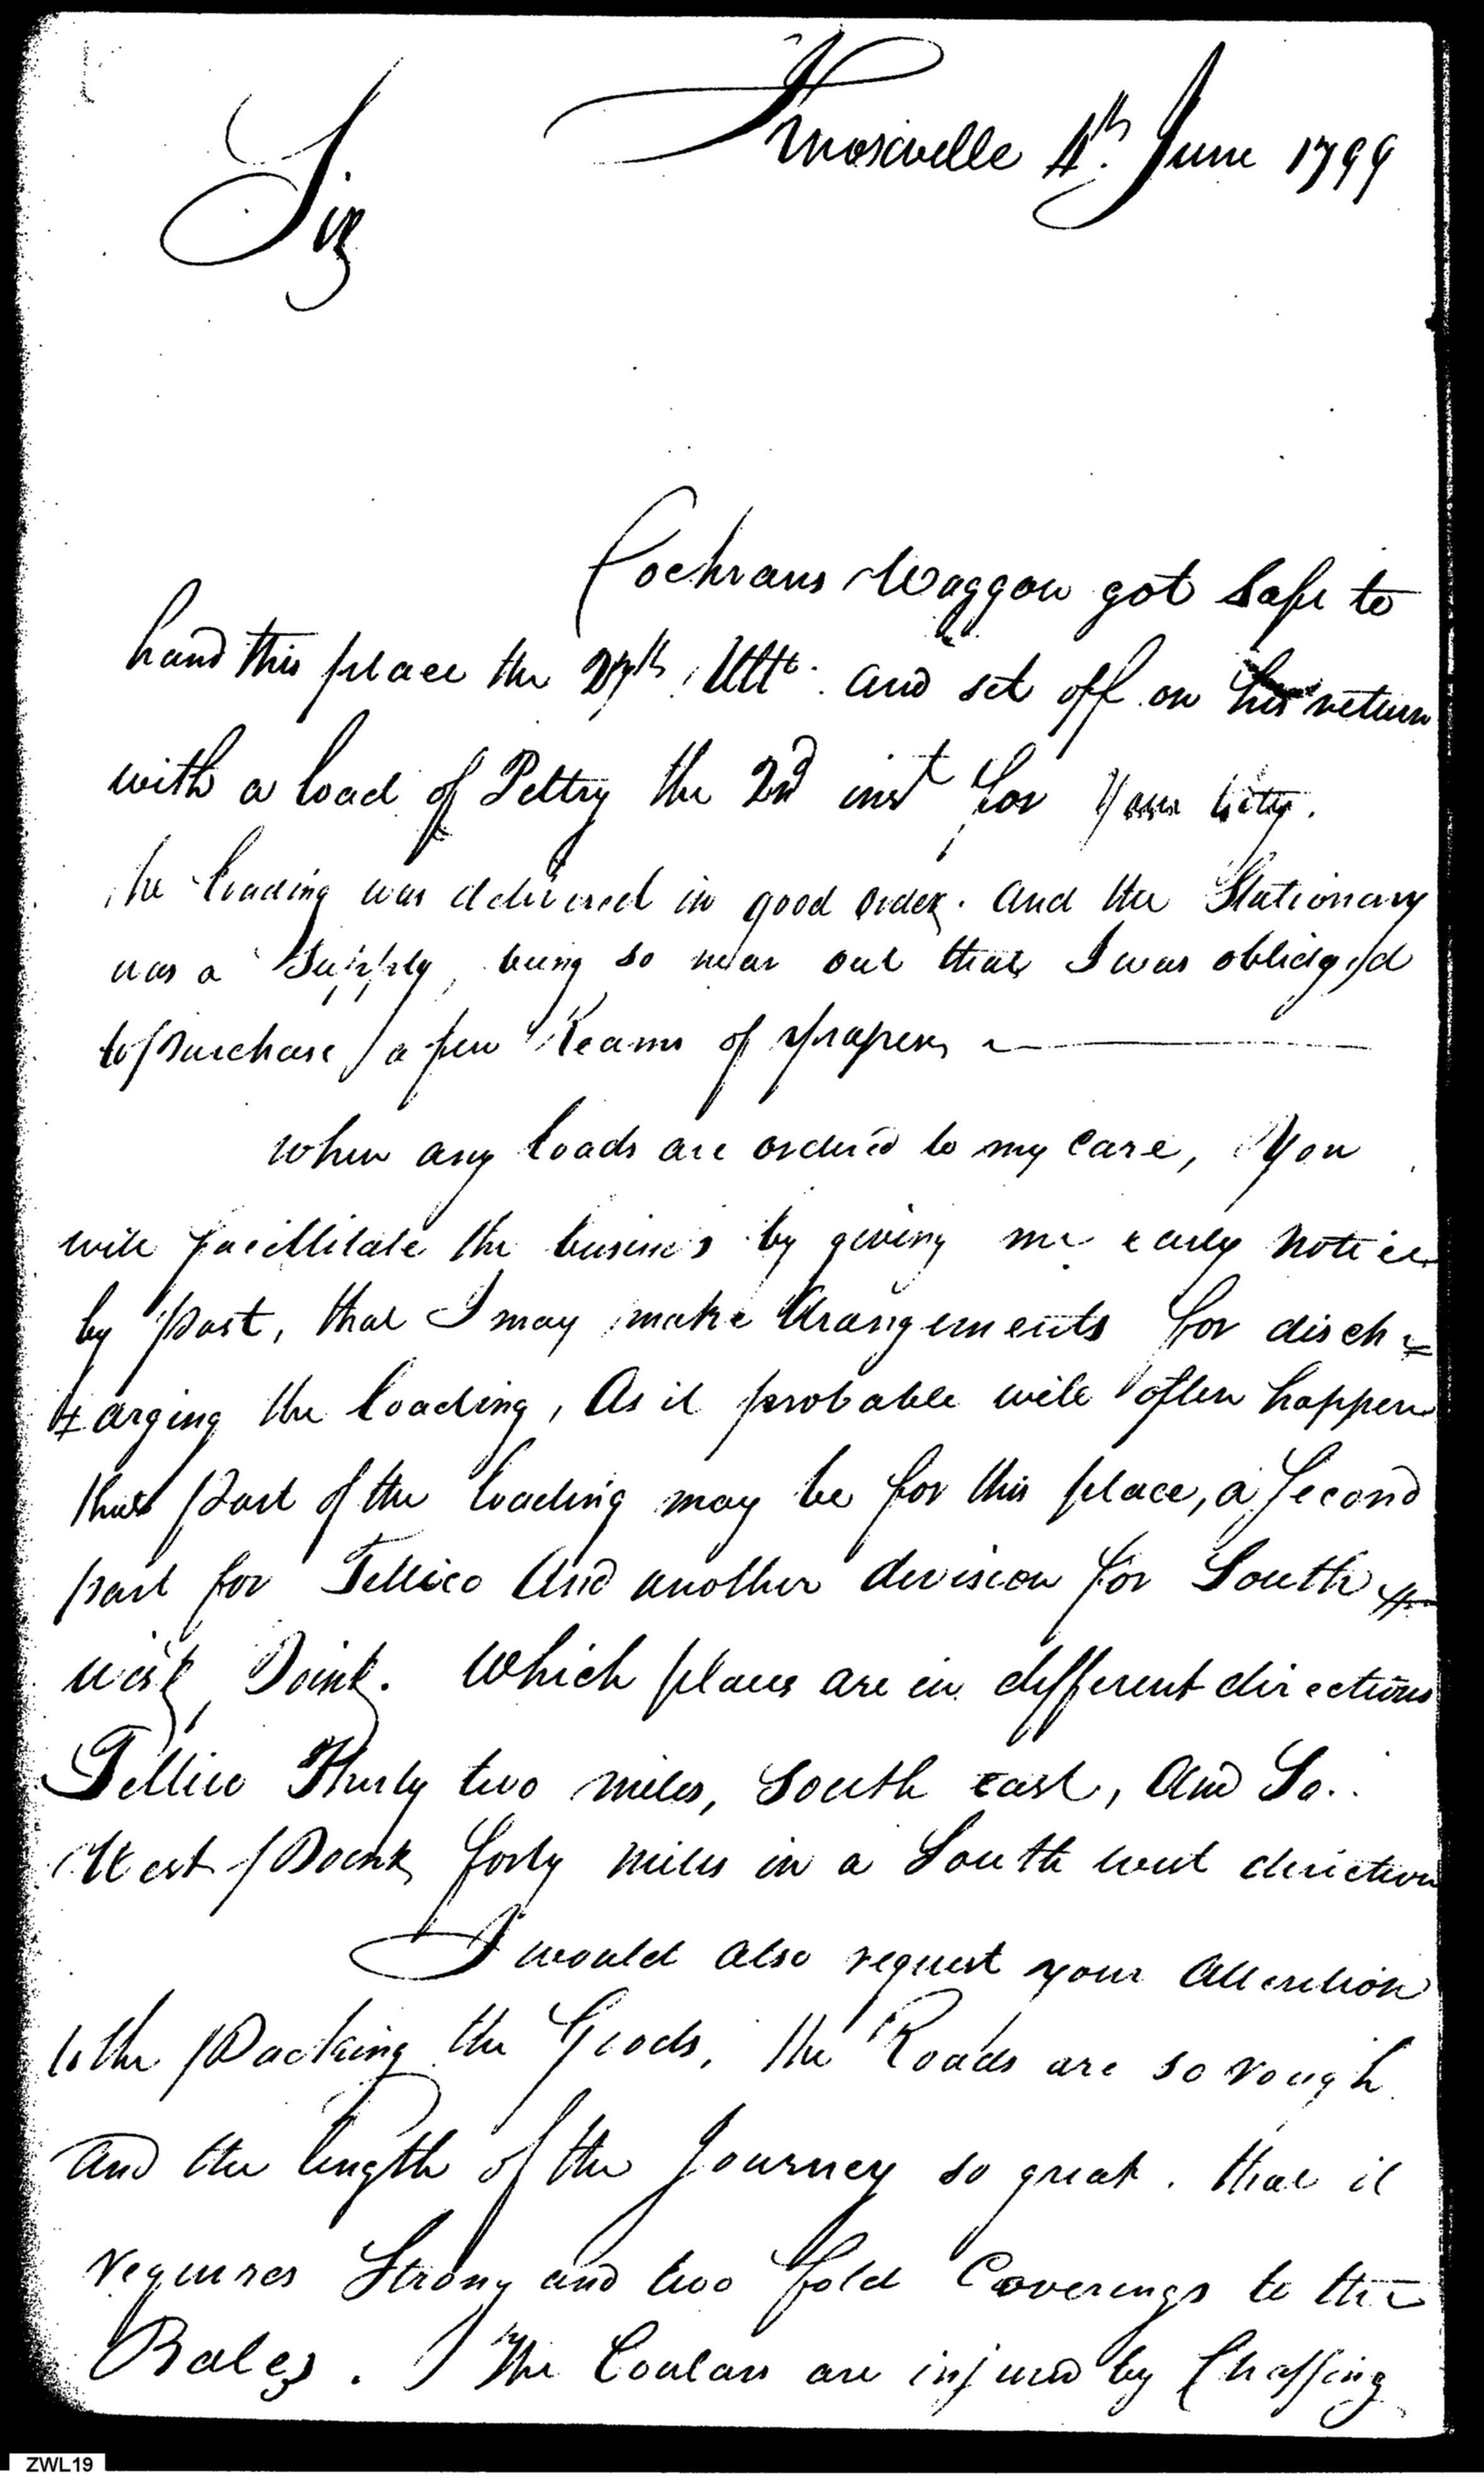 Knoxville 4th. June 1799
Sir
Cochrans Waggon got safe to
hand this place the 27th Ulto. and set off on his return
with a load of Peltry the 2nd inst for Your City.
The loading was delivered in good order. and the Stationary
was a Supply, being so near out that I was oblidged
to purchase a few Reams of paper
when any loads are ordered to my care, You
will facillitate the business by giving me early notice
by post, that I may make Arangements for disch=
=arging the loading, As it probable will often happen
that part of the loading may be for this place, a Second
part for Tellico And another division for South
west Point. Which places are in different directions
Tellico Thirty two miles, South east, And So.
West Point forty miles in a South west direction
I would also request your attention
to the Packing the Goods, the Roads are so rough
and the length of the Journey so great. that it
requires Strong and two fold Coverings to the
Bales. The are injured by Chaffing
ZWL19